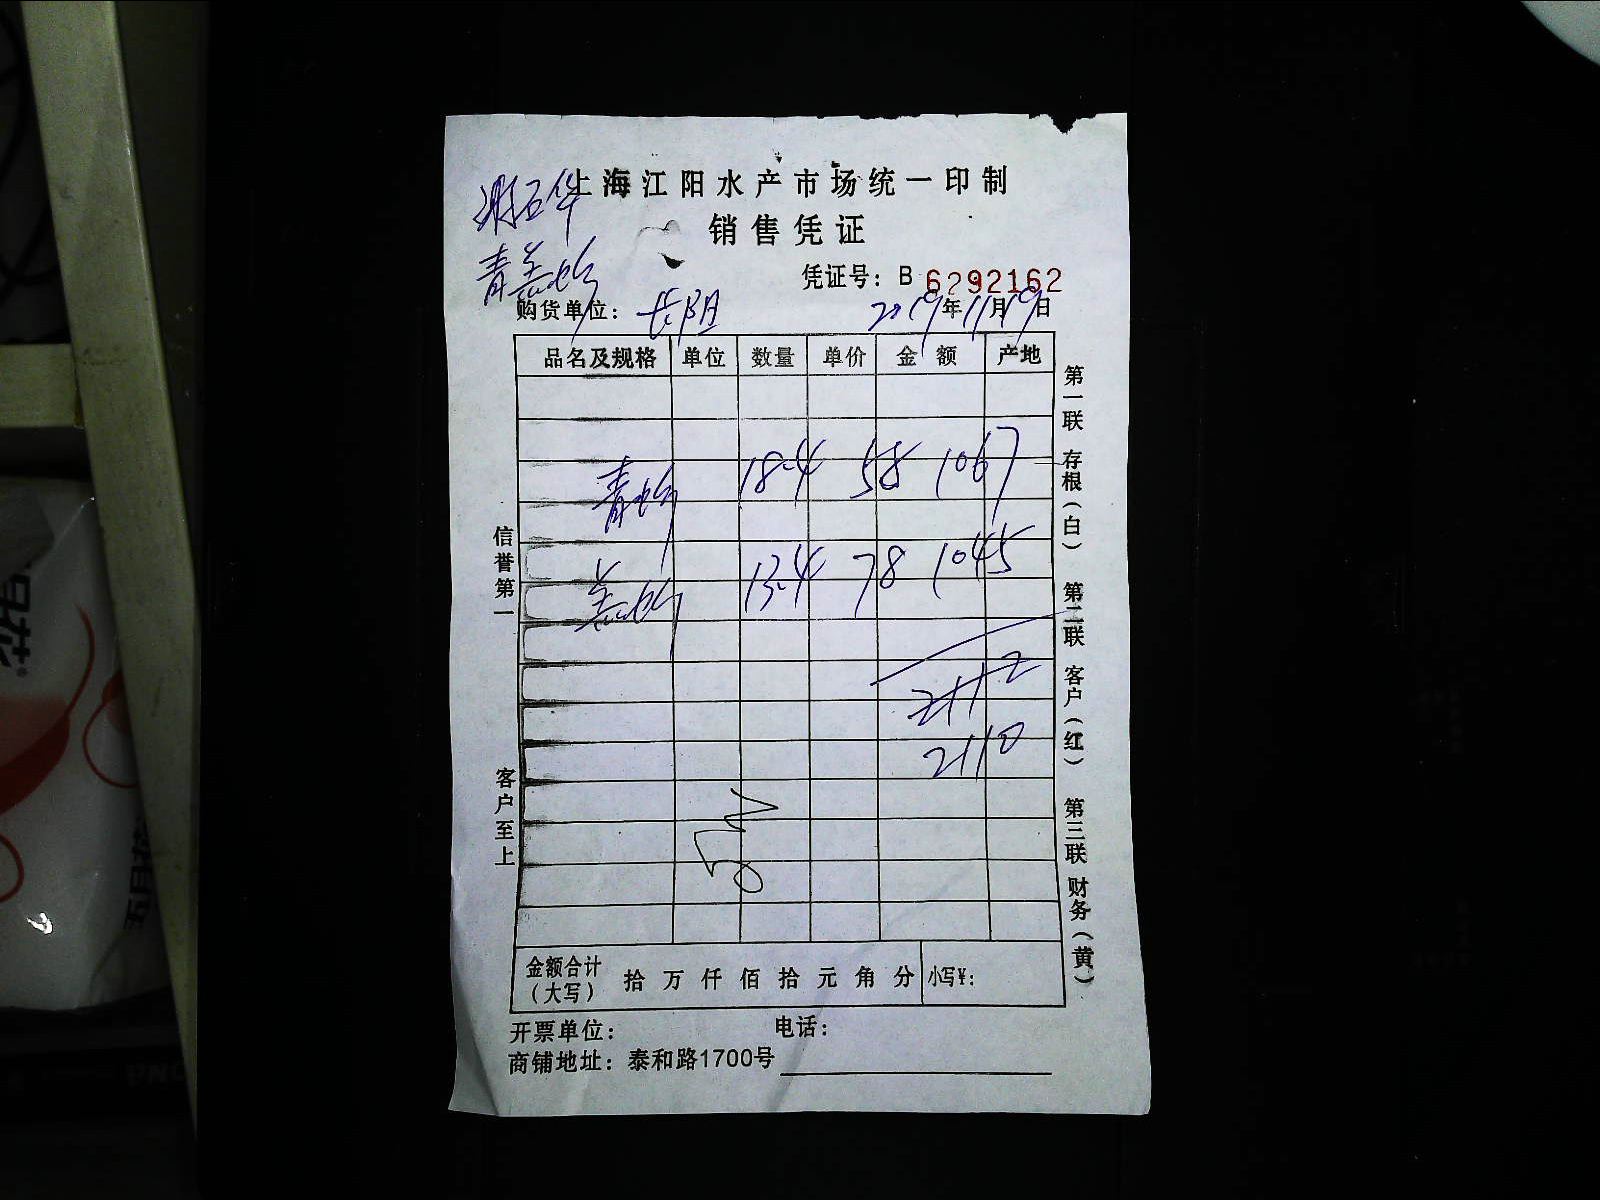 上海江阳水产市场统一印制
销售凭证
凭证号：B 6292162
购货单位：长阳 2019年11月19日
品名及规格 单位 数量 单价 金额 产地
18.4 58 1067
13.4 78 1045
2112
2110
金额合计（大写） 拾万仟佰拾元角分 小写¥：
开票单位： 电话：
商铺地址：泰和路1700号
信誉第一
客户至上
第一联 存根（白）
第二联 客户（红）
第三联 财务（黄）